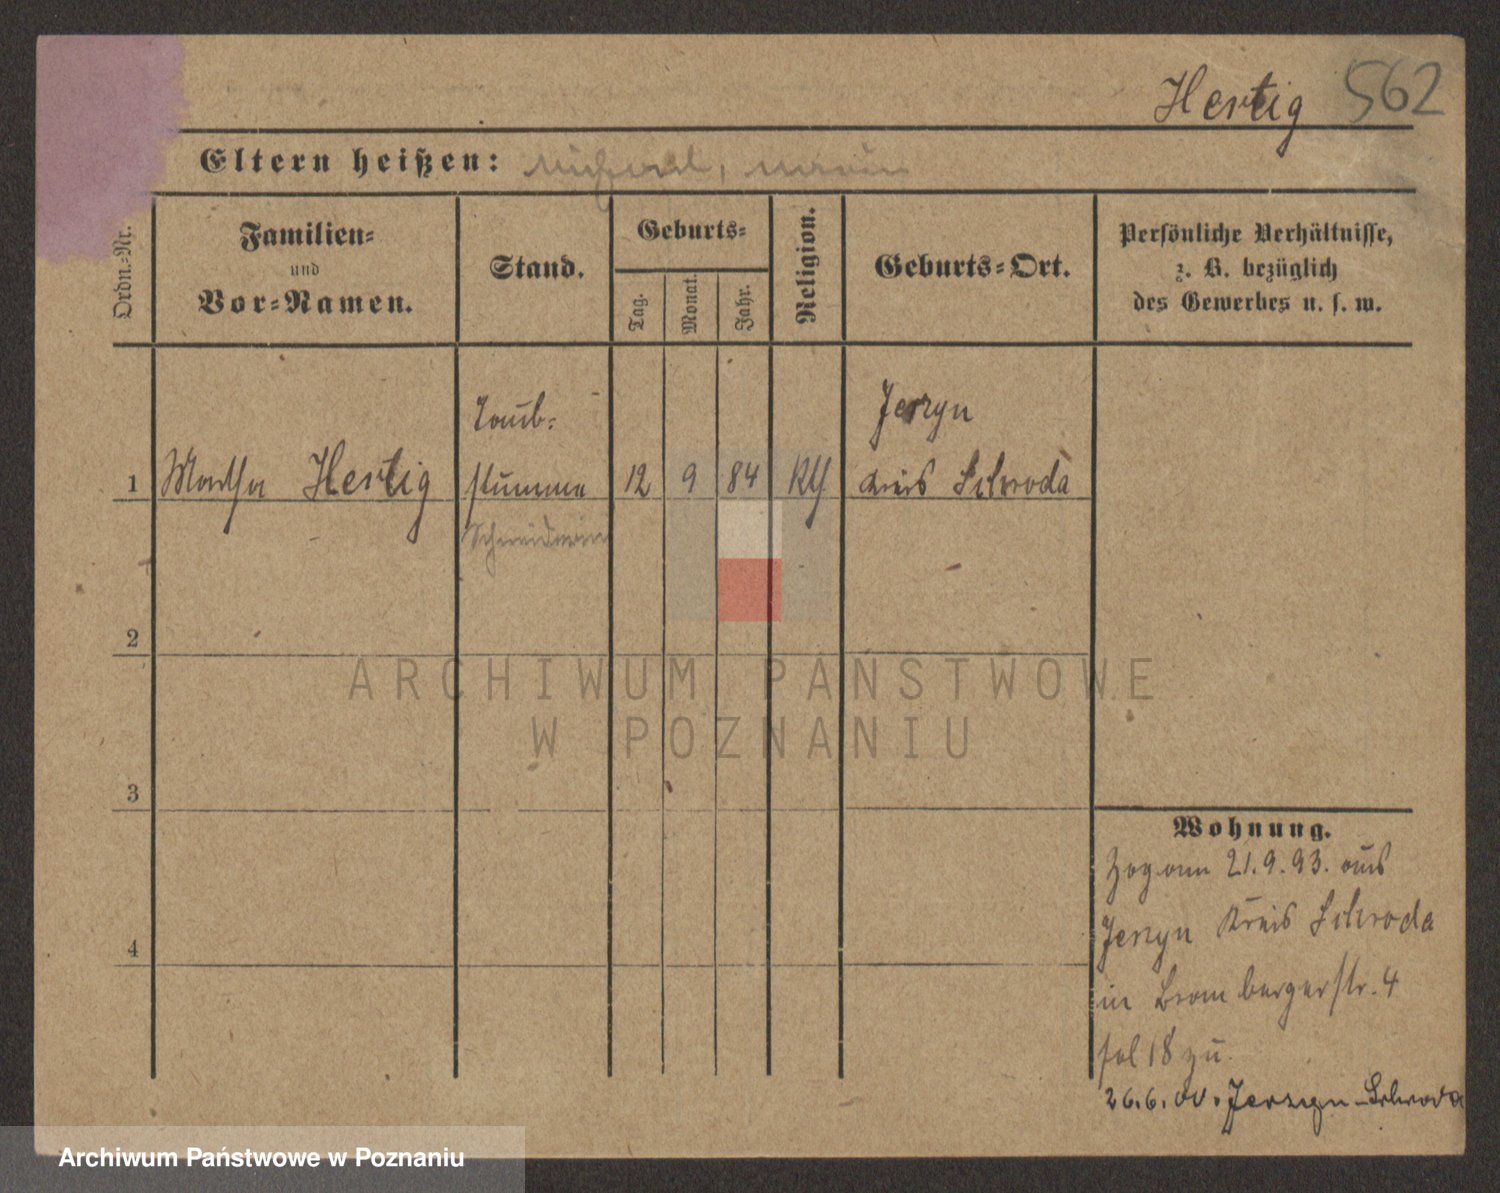 Hertig 562
Eltern heißen: Michael, Maria
Ordn.-Nr.
Familien-
und
Vor-Namen.
Stand.
Geburts-
Tag.
Monat.
Jahr.
Religion.
Geburts-Ort.
Persönliche Verhältnisse,
z. B. bezüglich
des Gewerbes u. s. w.
1 Martha Hertig
Taub-
stumme
Schneiderin
12 9 84
Kth
Jerzyn
Kreis Schroda
2
3
4
Wohnung.
Zog am 21.9.93. aus
Jerzyn Kreis Schroda
in Brombergerstr. 4
fol 18 zu.
26.6.00. Jerzyn - Schroda
ARCHIWUM PAŃSTWOWE
W POZNANIU
Archiwum Państwowe w Poznaniu